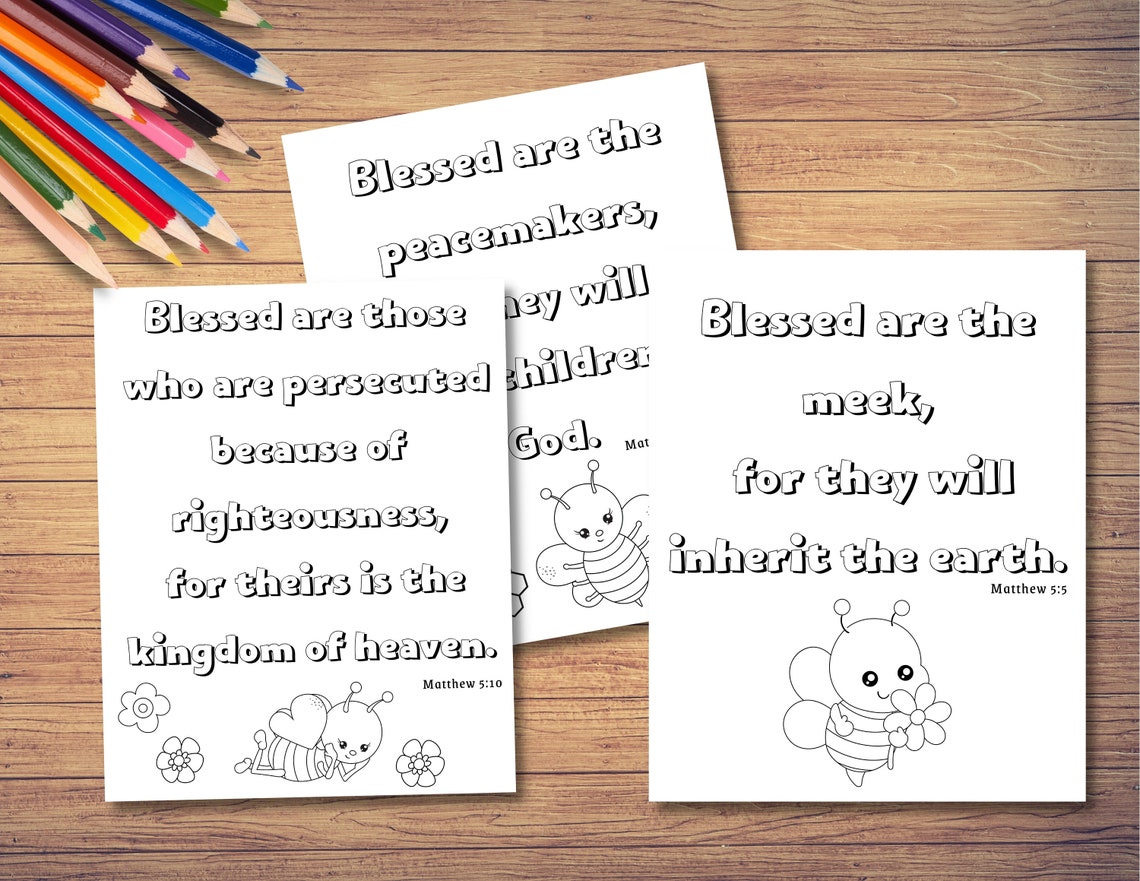 Blessed are the
peacemakers,
they will
children
God.
Blessed are those
who are persecuted
because of
righteousness,
for theirs is the
kingdom of heaven.
Matthew 5:10
Blessed are the
meek,
for they will
inherit the earth.
Matthew 5:5